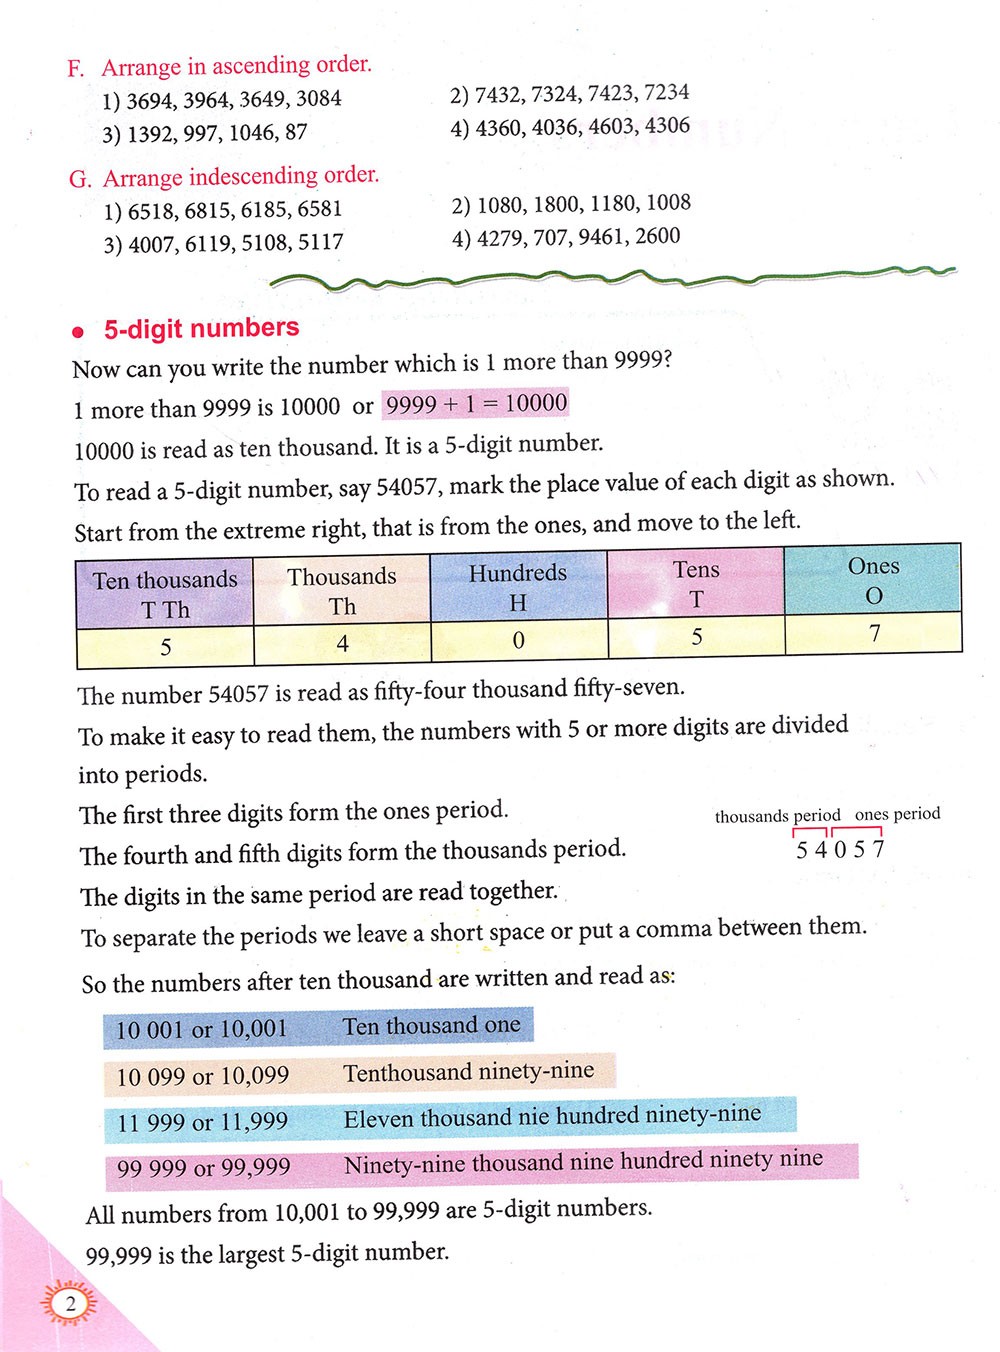 F. Arrange in ascending order.
1) 3694, 3964, 3649, 3084
2) 7432, 7324, 7423, 7234
3) 1392, 997, 1046, 87
4) 4360, 4036, 4603, 4306
G. Arrange indescending order.
1) 6518, 6815, 6185, 6581
2) 1080, 1800, 1180, 1008
3) 4007, 6119, 5108, 5117
4) 4279, 707, 9461, 2600
• 5-digit numbers
Now can you write the number which is 1 more than 9999?
1 more than 9999 is 10000 or 9999 + 1 = 10000
10000 is read as ten thousand. It is a 5-digit number.
To read a 5-digit number, say 54057, mark the place value of each digit as shown.
Start from the extreme right, that is from the ones, and move to the left.
Ten thousands Thousands Hundreds Tens Ones
T Th Th H T O
5 4 0 5 7
The number 54057 is read as fifty-four thousand fifty-seven.
To make it easy to read them, the numbers with 5 or more digits are divided
into periods.
The first three digits form the ones period.
thousands period ones period
The fourth and fifth digits form the thousands period.
5 4 0 5 7
The digits in the same period are read together.
To separate the periods we leave a short space or put a comma between them.
So the numbers after ten thousand are written and read as:
10 001 or 10,001 Ten thousand one
10 099 or 10,099 Tenthousand ninety-nine
11 999 or 11,999 Eleven thousand nie hundred ninety-nine
99 999 or 99,999 Ninety-nine thousand nine hundred ninety nine
All numbers from 10,001 to 99,999 are 5-digit numbers.
99,999 is the largest 5-digit number.
2